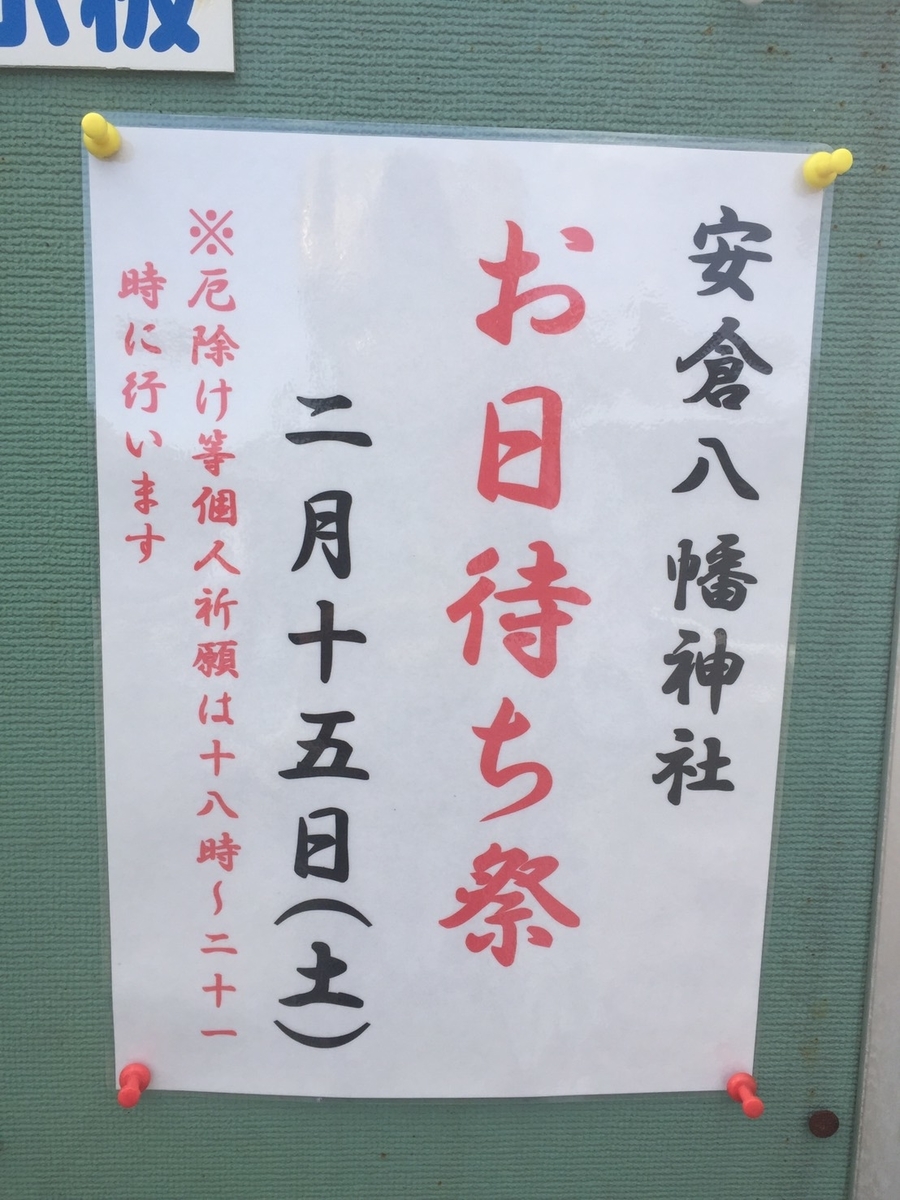 安倉八幡神社
お日待ち祭
二月十五日(土)
※厄除け等個人祈願は十八時~二十一
時に行います